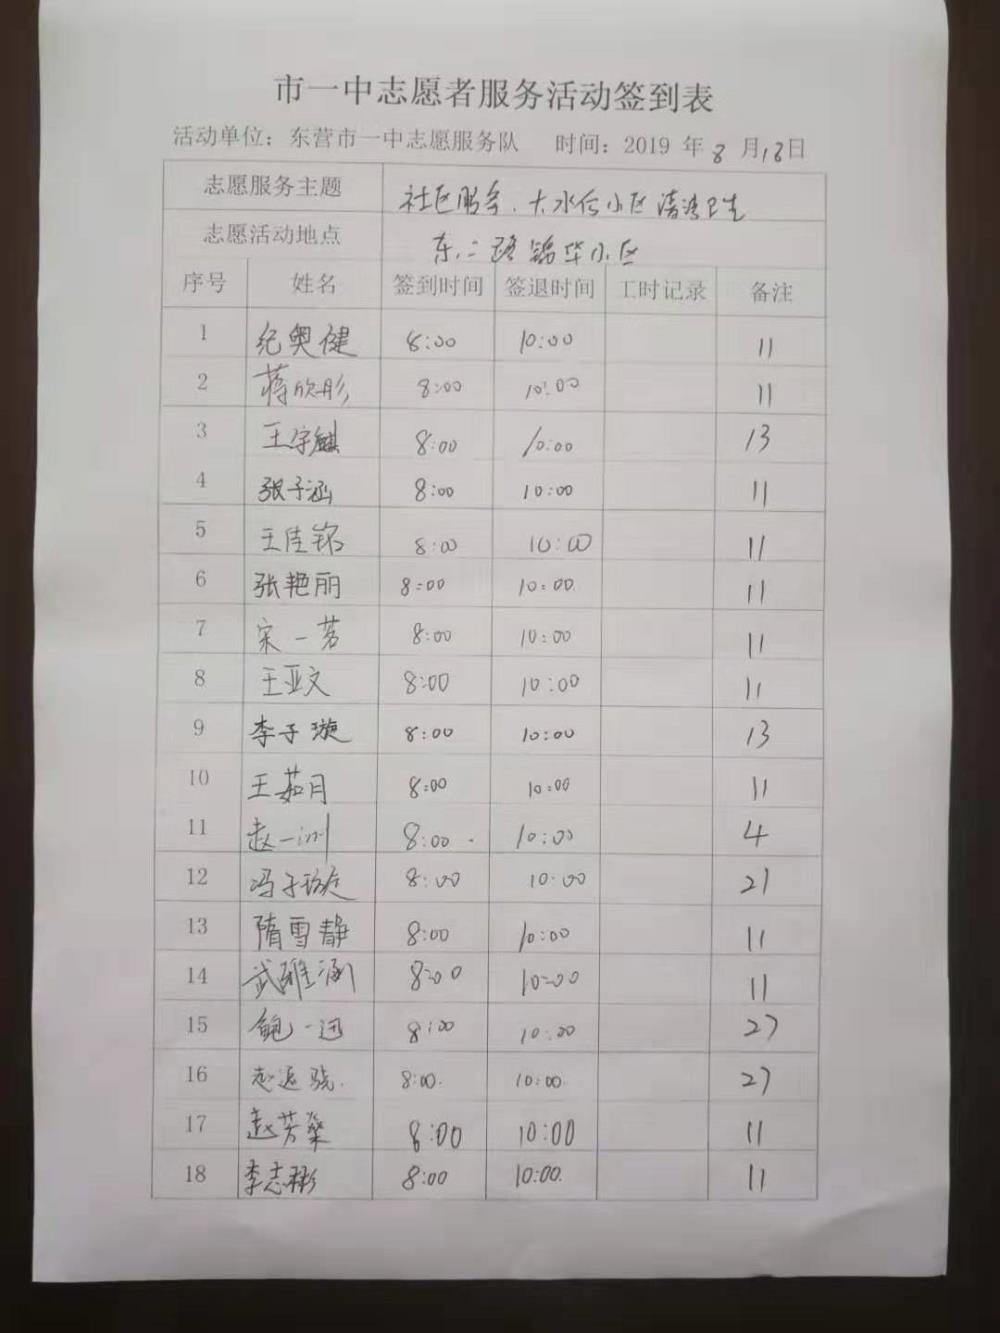 市一中志愿者服务活动签到表
活动单位：东营市一中志愿服务队 时间：2019 年 8 月 18 日
志愿服务主题 社区服务、大水后小区清洁卫生
志愿活动地点 东二路锦华小区
序号 姓名 签到时间 签退时间 工时记录 备注
1 纪奥健 8:00 10:00 11
2 蒋欣彤 8:00 10:00 11
3 王宇麒 8:00 10:00 13
4 张子涵 8:00 10:00 11
5 王佳铭 8:00 10:00 11
6 张艳丽 8:00 10:00 11
7 宋一芳 8:00 10:00 11
8 王亚文 8:00 10:00 11
9 李子璇 8:00 10:00 13
10 王茹月 8:00 10:00 11
11 赵一洲 8:00 10:00 4
12 8:00 10:00 21
13 隋雪静 8:00 10:00 11
14 8:00 10:00 11
15 鲍一迅 8:00 10:00 27
16 8:00 10:00 27
17 赵芳燊 8:00 10:00 11
18 李志彬 8:00 10:00 11